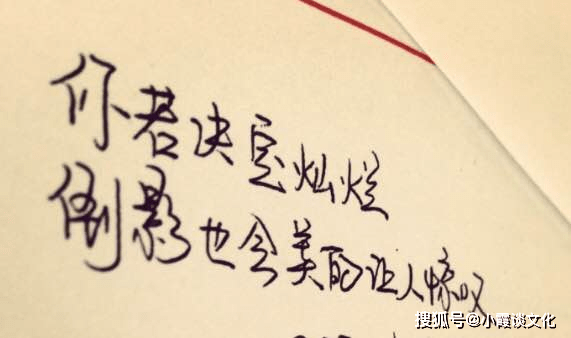 你若决定灿烂
倒影也会美的让人惊叹
搜狐号@小霞谈文化